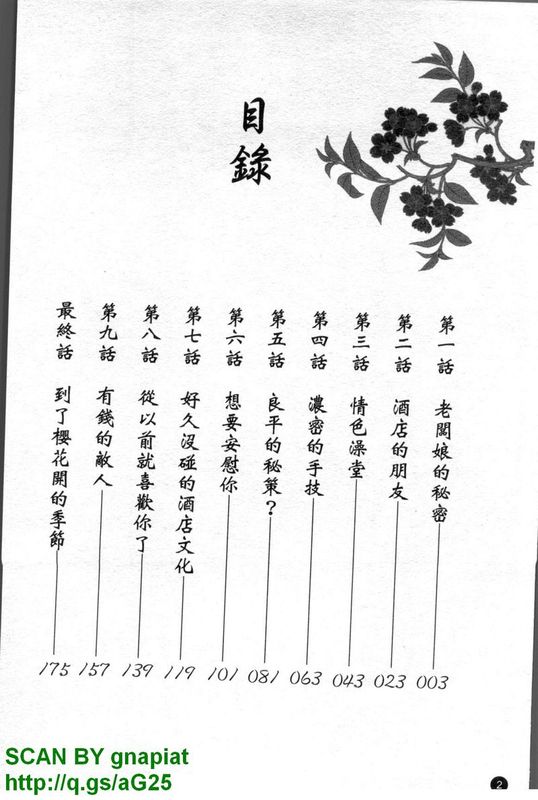 目錄
第一話 老闆娘的秘密 003
第二話 酒店的朋友 023
第三話 情色澡堂 043
第四話 濃密的手技 063
第五話 良平的秘策？ 081
第六話 想要安慰你 101
第七話 好久沒碰的酒店文化 119
第八話 從以前就喜歡你了 139
第九話 有錢的敵人 157
最終話 到了櫻花開的季節 175
SCAN BY gnapiat
http://q.gs/aG25
2